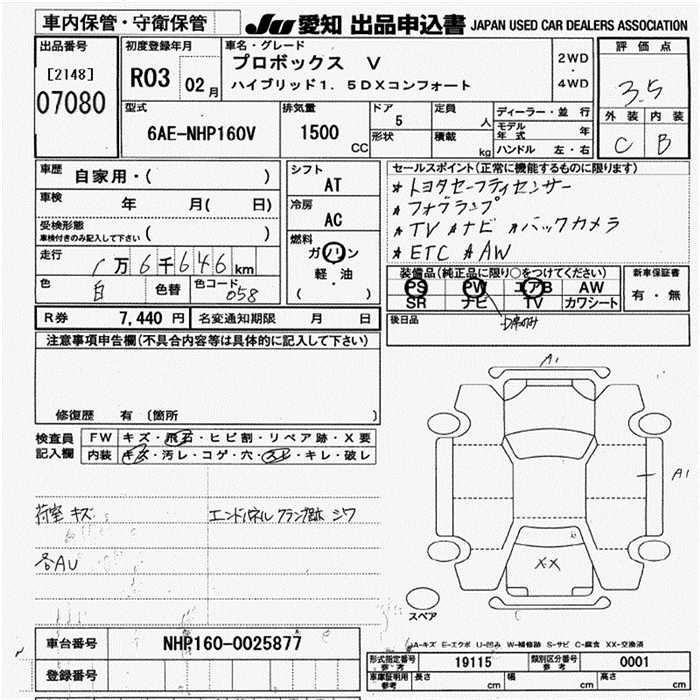 車内保管・守衛保管
JU 愛知 出品申込書 JAPAN USED CAR DEALERS ASSOCIATION
出品番号
[2148]
07080
初度登録年月
R03 02 月
車名・グレード
プロボックス V
ハイブリッド1.5DXコンフォート
2WD
・
4WD
評価点
3.5
外装 内装
C B
型式
6AE-NHP160V
排気量
1500 CC
ドア
5
形状
定員
人
積載
kg
ディーラー・並行
モデル年式 年
ハンドル 左・右
車歴
自家用・( )
車検
年 月( 日)
受検形態
車検付きのみ記入して下さい ( )
走行
1万6千646km
色
白 色替
色コード
058
シフト
AT
冷房
AC
燃料
ガソリン
軽・油
( )
セールスポイント(正常に機能するものに限ります)
★トヨタセーフティセンサー
★フォグランプ
★TV★ナビ★バックカメラ
★ETC★AW
装備品(純正品に限り○をつけてください)
PS PW エアB AW
SR ナビ TV カワシート
新車保証書
有・無
後日品
R券 7,440 円
名変通知期限 月 日
注意事項申告欄(不具合内容等は具体的に記入して下さい)
修復歴 有 〔箇所 〕
検査員
記入欄
FW キズ・飛石・ヒビ割・リペア跡・X要
内装 キズ・汚レ・コゲ・穴・スレ・キレ・破レ
荷室キズ
エンドパネル クランプ跡 シワ
各AU
A1
A1
XX
スペア
A-キズ E-エクボ U-凹み W-補修跡 S-サビ C-腐食 XX-交換済
車台番号 NHP160-0025877
登録番号
形式指定番号
参考
19115
類別区分番号
参考
0001
車庫証明用
参考
長さ cm 幅 cm 高さ cm